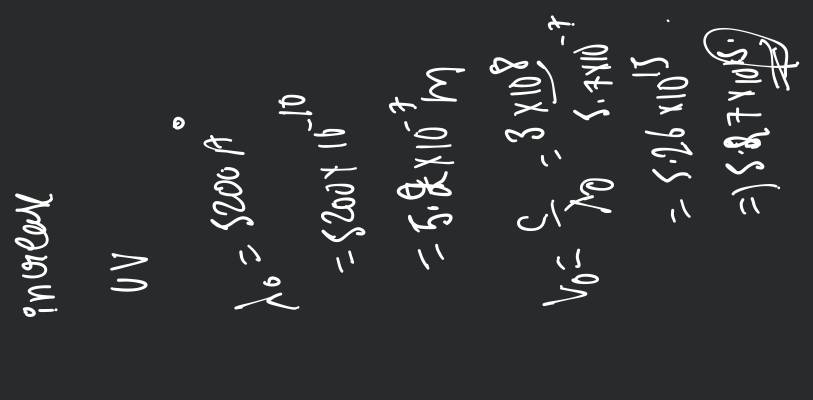 increase
UV
λ₀ = 5200 Å
= 5200 × 10⁻¹⁰
= 5.2 × 10⁻⁷ m
ν₀ = c/λ₀ = 3 × 10⁸ / 5.7 × 10⁻⁷
= 5.26 × 10¹⁵
=) 5.87 × 10¹⁵.